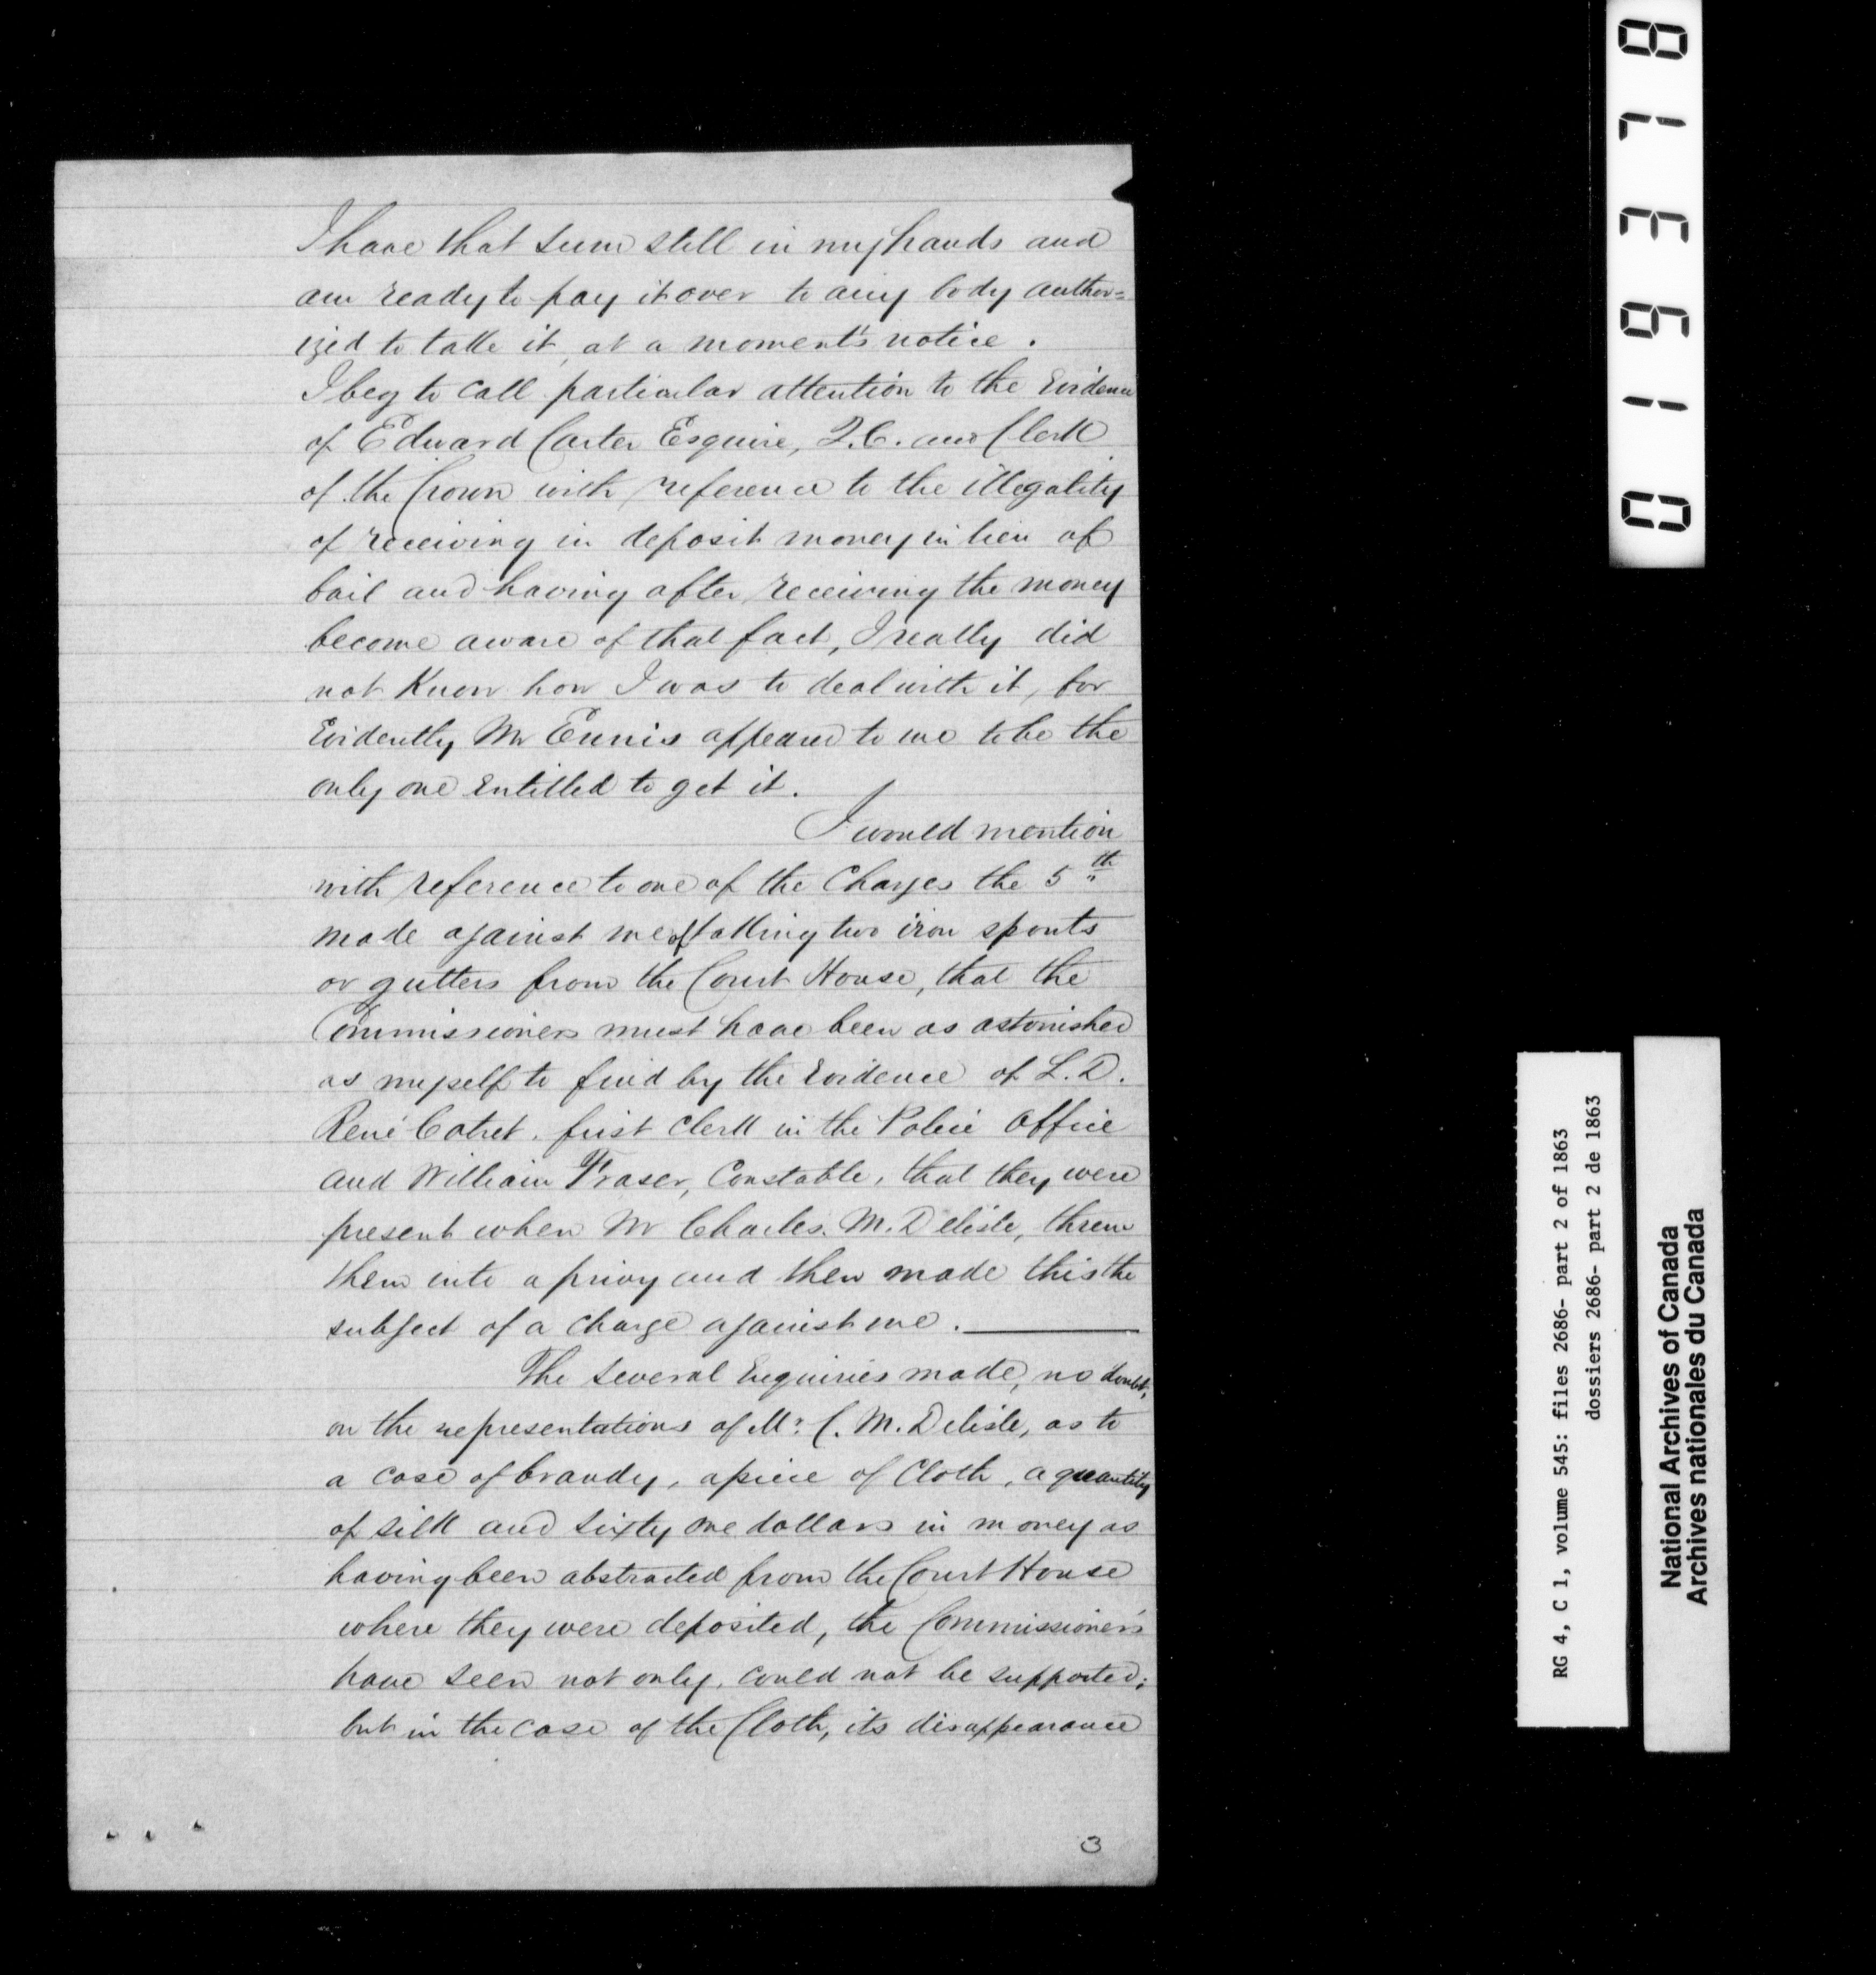 I have that sum still in my hands and
am ready to pay it over to any body author=
ized to take it, at a moment's notice.
I beg to call particular attention to the Evidence
of Edward Carter Esquire, Q.C. and Clerk
of the Crown with reference to the illegality
of receiving in deposit money in lieu of
bail and having after receiving the money
become aware of that fact, I really did
not Know how I was to deal with it, for
Evidently Mr Ennis appeared to me to be the
only one Entitled to get it.
I would mention
with reference to one of the Charges the 5th
made against me of taking two iron spouts
or gutters from the Court House, that the
Commissioners must have been as astonished
as myself to find by the Evidence of L.D.
René Cotret. first Clerk in the Police Office
and William Fraser, Constable, that they were
present when Mr Charles. M. Delisle, threw
them into a privy and then made this the
subject of a charge against me.
The several Enquiries made, no doubt,
on the representations of Mr. C. M. Delisle, as to
a case of brandy, a piece of Cloth, a quantity
of silk and sixty one dollars in money as
having been abstracted from the Court House
where they were deposited, the Commissioners
have seen not only, could not be supported;
but in the case of the Cloth, its disappearance
3
019378
RG 4, C 1, volume 545: files 2686- part 2 of 1863
dossiers 2686- part 2 de 1863
National Archives of Canada
Archives nationales du Canada